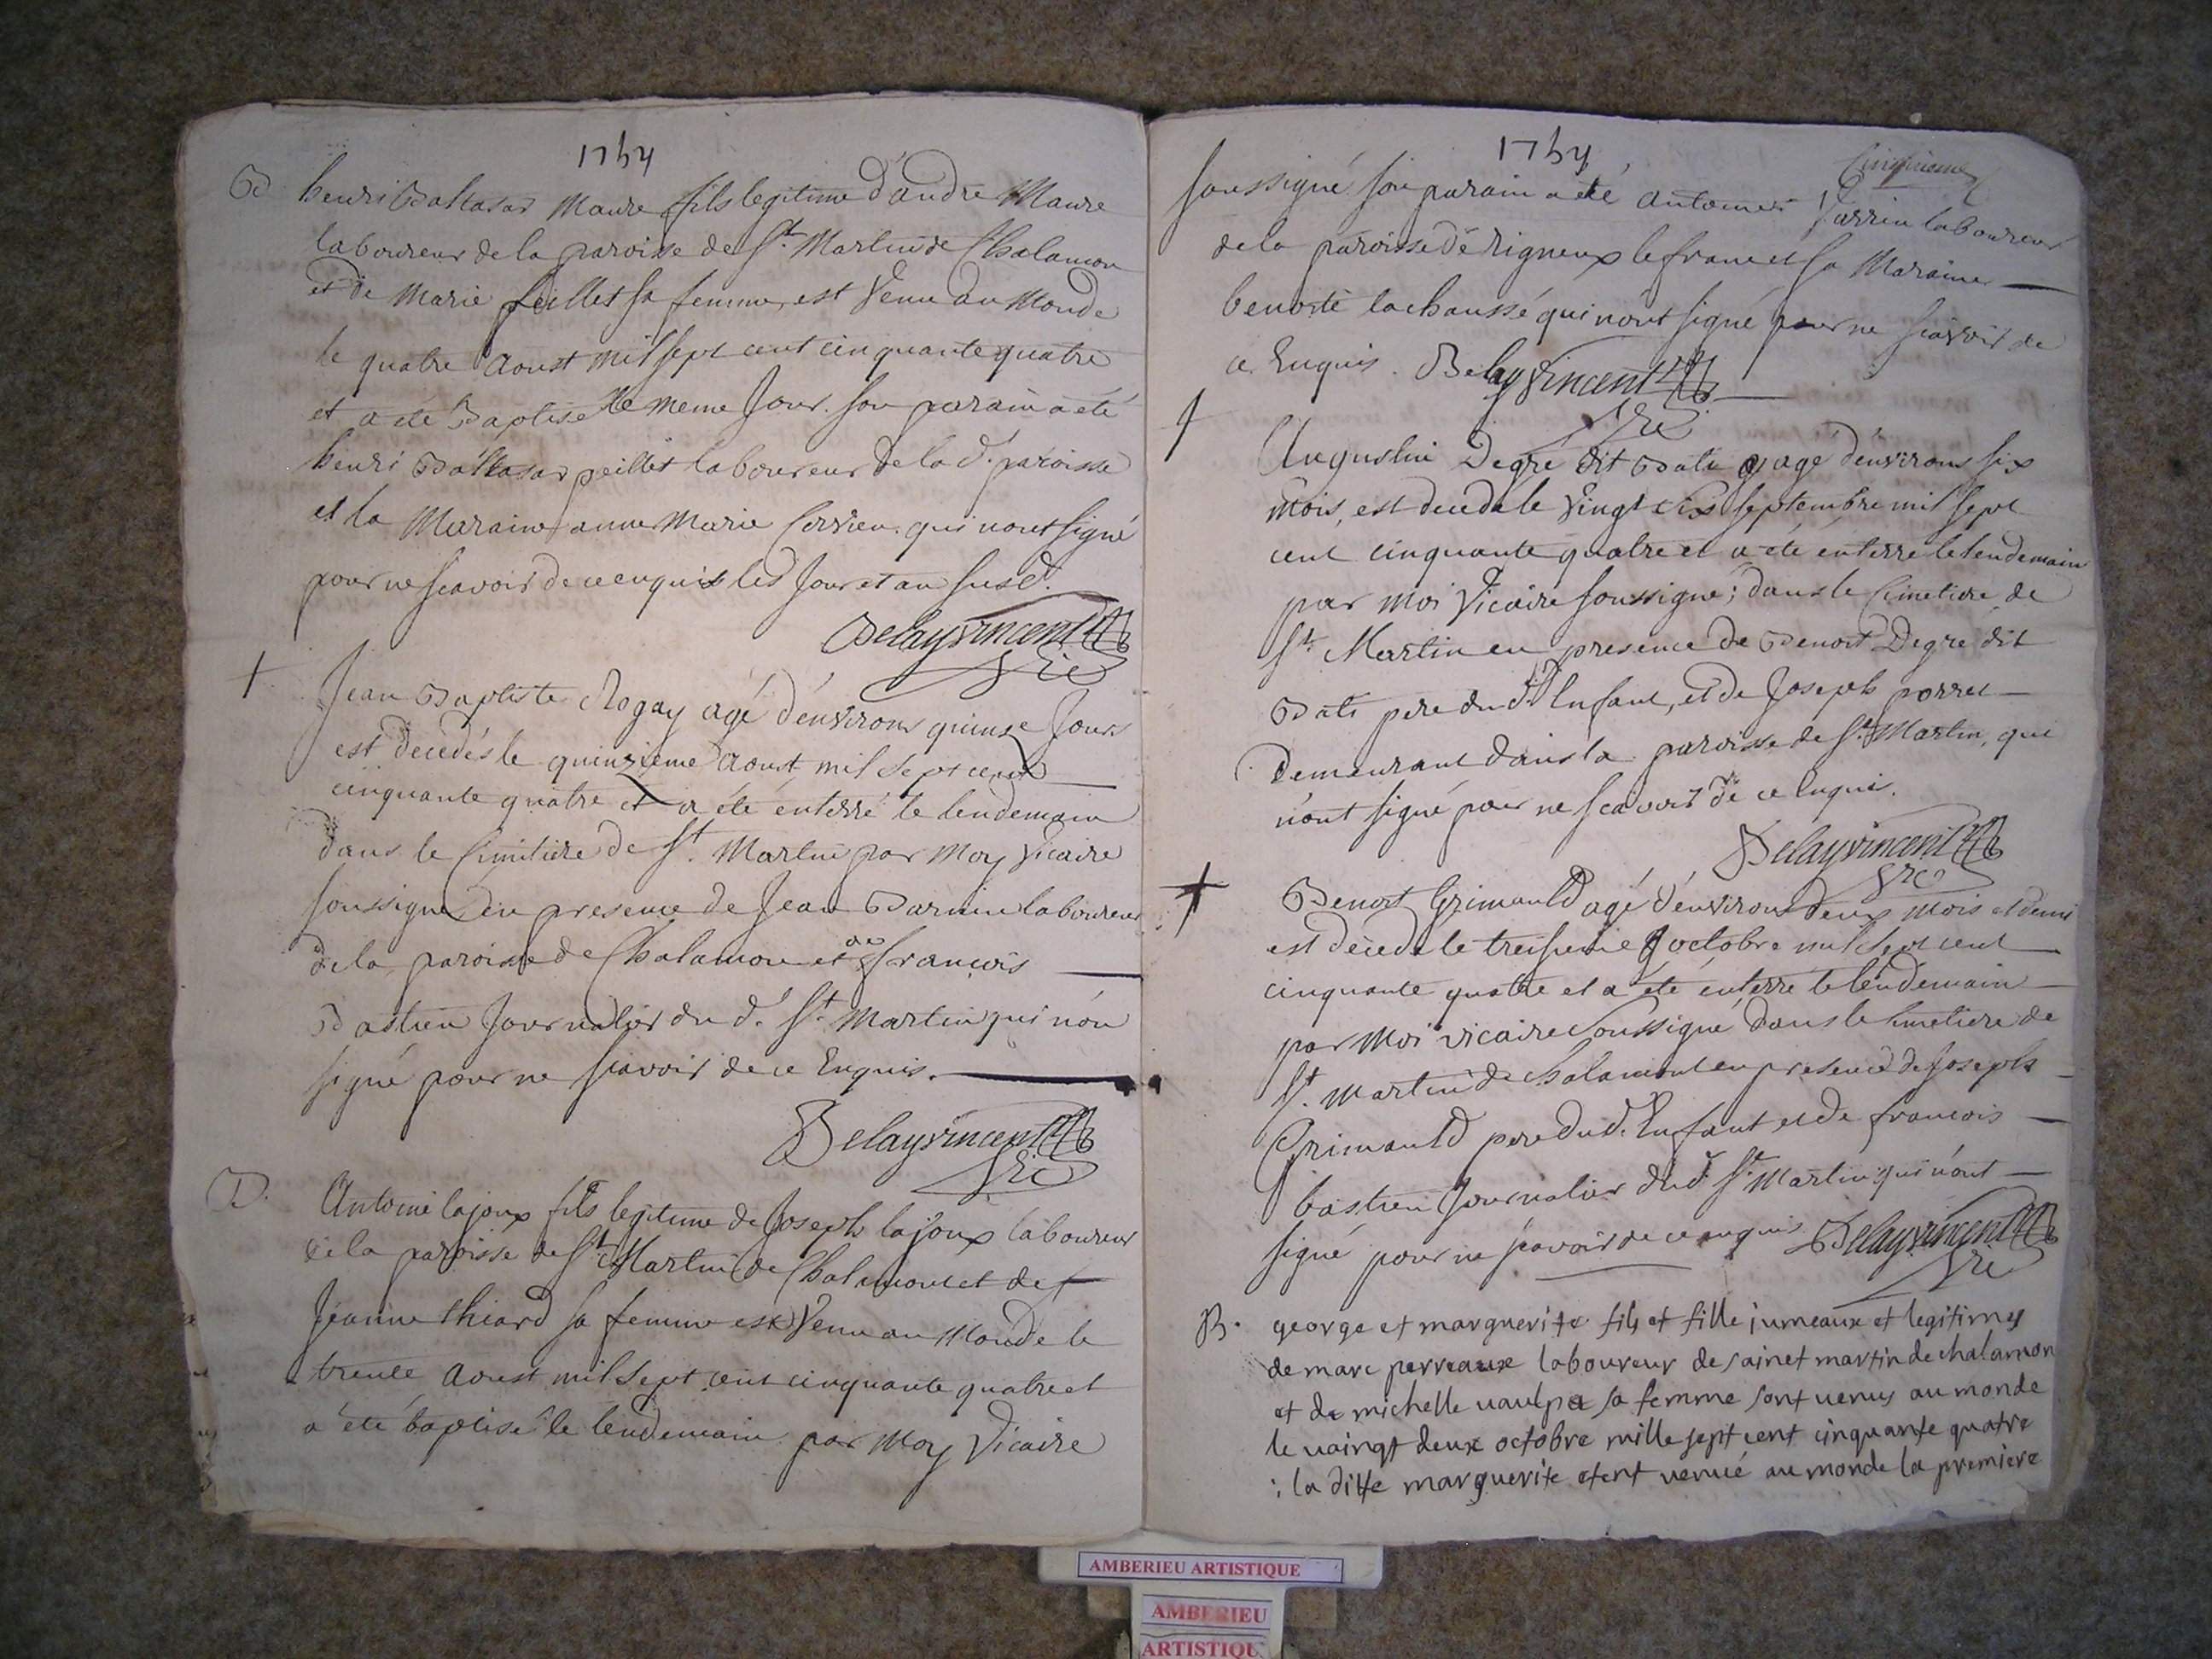 1754
B henri Baltasar Maure fils legitime d'andré Maure
laboureur de la paroisse de St. Martin de Chalamon
et de Marie peillet sa femme, est Venu au Monde
le quatre Aoust mil sept cent cinquante quatre
et a été Baptisé le meme Jour. son parain a été
henri Baltasar peillet laboureur de la d. paroisse
et la Maraine anne Marie qui n'ont signé
pour ne scavoir de ce enquis les Jour et an susd.
Delayvincent
Vic
+ Jean Baptiste Rogay agé d'environs quinse Jours
est decedés le quinzieme Aoust mil sept cent
cinquante quatre et a été énterré le lendemain
dans le Cimitiere de St. Martin par Moy Vicaire
soussigné en presence de Jean Barnin laboureur
de la paroisse de Chalamon et de francois
Bastien Journalier du d. St. Martin qui n'on
signé pour ne scavoir de ce Enquis.
Delayvincent
Vic
Antoine lajoux fils legitime de Joseph lajoux laboureur
de la paroisse de St. Martin de Chalamont et de
Jeanne thiard sa femme est Venu au Monde le
trente Aoust mil sept cent cinquante quatre et
a été baptisé le lendemain par Moy Vicaire
1754
Cinquieme
soussigné son parain a été antoine laboureur
de la paroisse de rigneux le franc et sa Maraine
benoite lachaussé qui n'ont signé pour ne scavoir de
ce Enquis. Delayvincent
Vic
Augustin Degré dit Bati agé d'environs six
mois, est decedé le Vingt six septembre mil sept
cent cinquante quatre et a été énterré le lendemain
par moi Vicaire soussigné; dans le Cimetiere de
St. Martin en presence de Benoit Degré dit
Bati pere du d. Enfant, et de Joseph porret
demeurant dans la paroisse de St. Martin, qui
n'ont signé pour ne scavoir de ce Enquis.
Delayvincent
Vic
+ Benoit Grimauld agé d'environs deux mois et demi
est décedé le treisieme octobre mil sept cent
cinquante quatre et a été énterré le lendemain
par Moi vicaire soussigné dans le simetiere de
St. Martin de chalamont en presence de Joseph
Grimauld pere du d. Enfant et de francois
bastien Journalier du d. St. Martin qui n'ont
signé pour ne scavoir de ce enquis Delayvincent
Vic
B. george et marguerite fils et fille jumeaux et legitimes
de marc perreaux laboureur de sainct martin de chalamon
et de michelle vaulpa sa femme sont venus au monde
le vaingt deux octobre mille sept cent cinquante quatre
: la ditte marguerite etent venué au monde la premiere
AMBERIEU ARTISTIQUE
AMBERIEU
ARTISTIQU